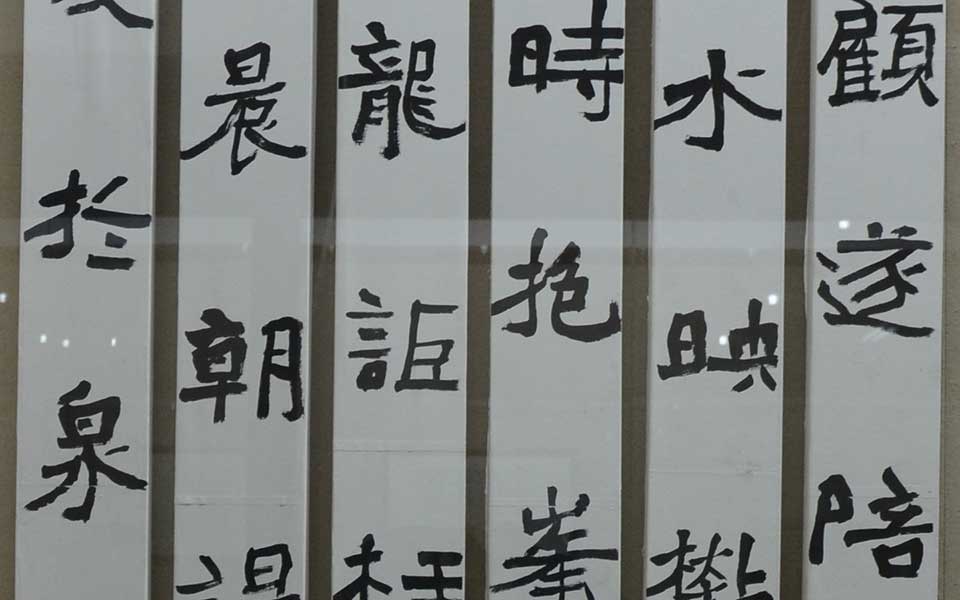 顧遂陪
水映
時抱峯
龍詎枉
晨朝
扵泉